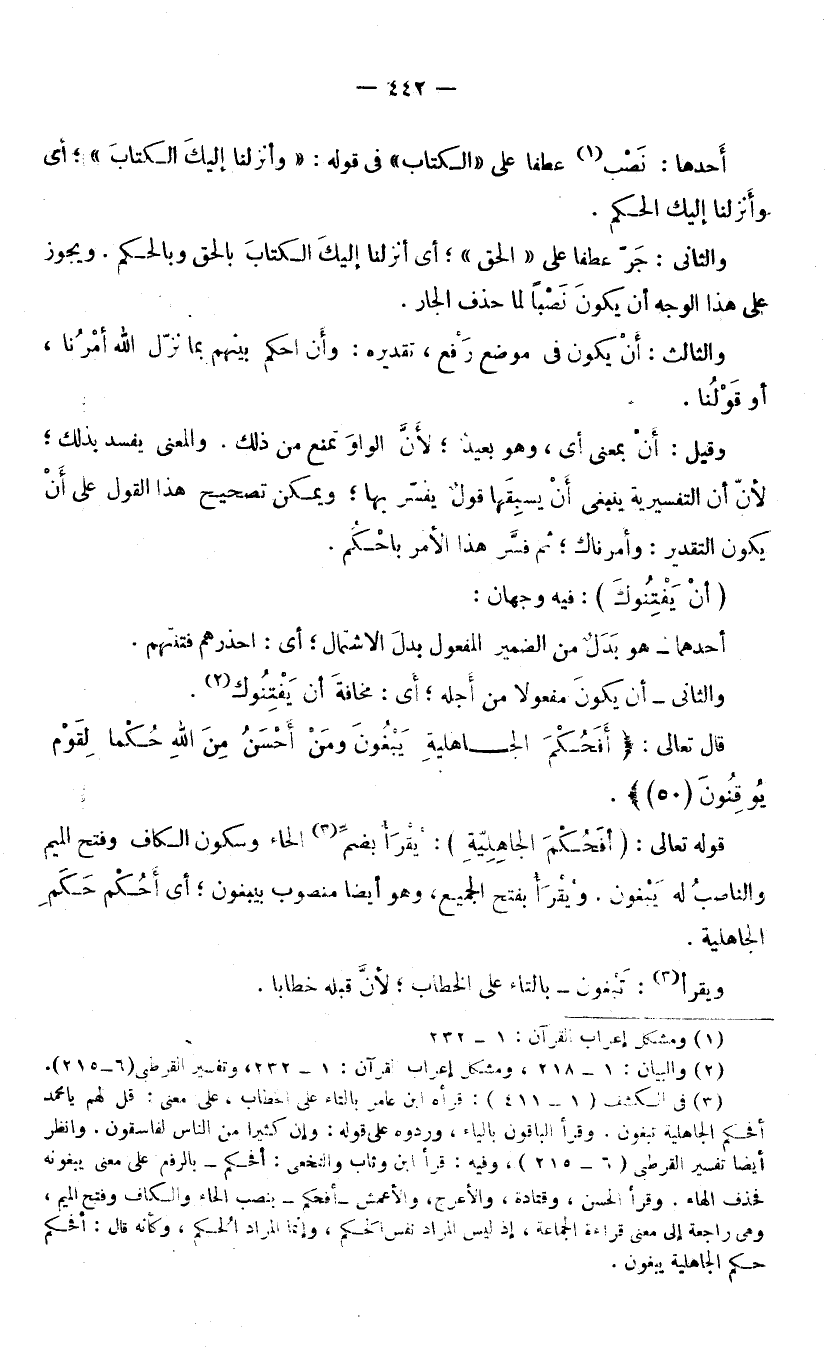 — ٤٤٢ —
أَحدها : نَصْب(١) عطفا على «الكتاب» فى قوله : « وأنزلنا إليكَ الكتابَ » ؛ أى
وأَنزلنا إليك الحكم .
والثانى : جَرّ عطفا على « الحق » ؛ أى أنزلنا إليكَ الكتابَ بالحق وبالحكم . ويجوز
على هذا الوجه أن يكونَ نَصْباً لما حذف الجار .
والثالث : أَنْ يكون فى موضع رَفْع ، تقديره : وأَن احكم بينهم بما نزّل الله أمْرُنا ،
أو قَوْلُنا .
وقيل : أَنْ بمعنى أى ، وهو بعيدٌ ؛ لأَنَّ الواوَ تمنع من ذلك . والمعنى يفسد بذلك ؛
لأنّ أن التفسيرية ينبغى أَنْ يسبِقَها قولٌ يفسّر بها ؛ ويمكن تصحيح هذا القول على أَنْ
يكون التقدير : وأمرناك ؛ ثم فسَّر هذا الأمر باحْكُم .
( أنْ يَفْتِنُوكَ ) : فيه وجهان :
أحدهما ـ هو بَدَلٌ من الضمير المفعول بدلَ الاشتمال ؛ أى : احذرهم فتنتَهم .
والثانى ـ أن يكونَ مفعولا من أَجله ؛ أَى : مخافةَ أن يَفْتِنُوك(٢) .
قال تعالى : ﴿ أَفَحُكْمَ الجاهليةِ يَبْغُونَ ومَنْ أَحْسَنُ مِنَ اللهِ حُكْما لِقَوْم
يُوقِنُونَ (٥٠)﴾ .
قوله تعالى : ( أفَحُكْمَ الجاهِلِيّةِ ) : يُقْرَأُ بضم(٣) الحاء وسكون الكاف وفتح الميم
والناصبُ له يَبْغون . ويُقْرَأُ بفتح الجميع، وهو أيضا منصوب بيبغون ؛ أى أَحُكْم حَكَمِ
الجاهلية .
ويقرأ(٣) : تَبْغون ـ بالتاء على الخطاب ؛ لأنَّ قبله خطابا .
(١) ومشكل إعراب القرآن : ١ ـ ٢٣٢
(٢) والبيان : ١ ـ ٢١٨ ، ومشكل إعراب القرآن : ١ ـ ٢٣٢، وتفسير القرطبى (٦ـ٢١٥).
(٣) فى الكشف ( ١ ـ ٤١١ ) : قرأه ابن عامر بالتاء على الخطاب ، على معنى : قل لهم يامحمد
أفحكم الجاهلية تبغون . وقرأ الباقون بالياء ، وردوه على قوله : وإن كثيرا من الناس لفاسقون . وانظر
أيضا تفسير القرطبى ( ٦ ـ ٢١٥ ) ، وفيه : قرأ ابن وثاب والنخعى : أفحكم ـ بالرفع على معنى يبغونه
فحذف الهاء . وقرأ الحسن ، وقتادة ، والأعرج، والأعمش ـ أفحكم ـ بنصب الحاء والكاف وفتح الميم ،
وهى راجعة إلى معنى قراءة الجماعة ، إذ ليس المراد نفس الحكم ، وإنما المراد الحكم ، وكأنه قال : أفحكم
حكم الجاهلية يبغون .